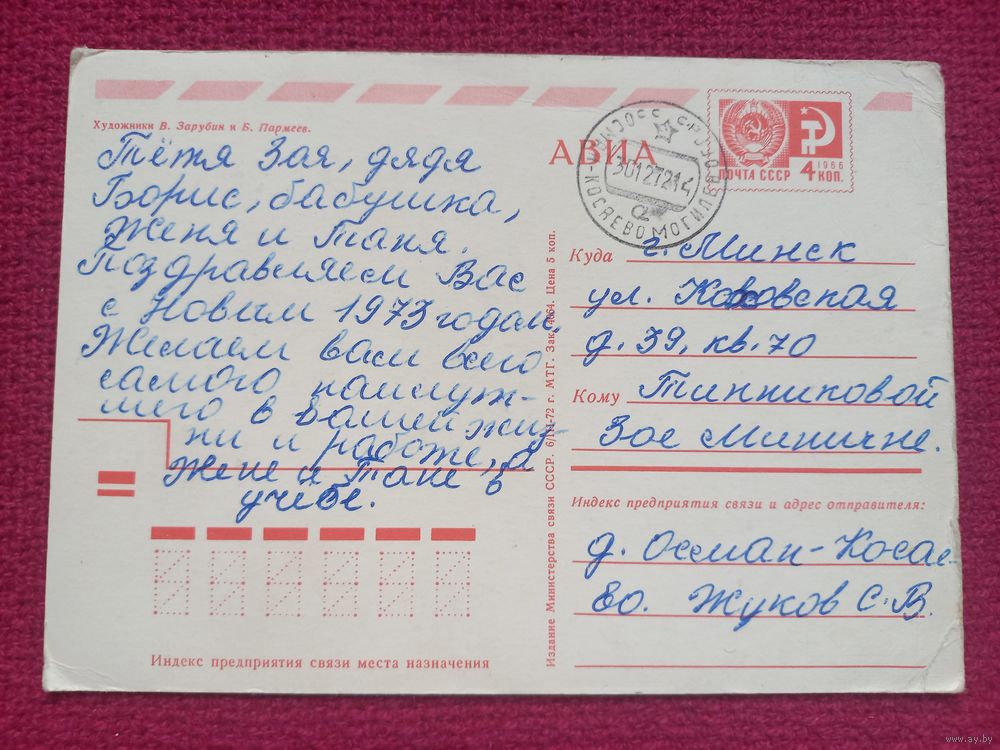 Художники В. Зарубин и Б. Пармеев.
Тётя Зоя, дядя
Борис, бабушка,
Женя и Таня.
Поздравляем Вас
с Новым 1973 годом.
Желаем вам всего
самого наилуч-
шего в вашей жиз-
ни и работе, а
Жене и Тане в
учёбе.
Индекс предприятия связи места назначения
Издание Министерства связи СССР. 6/III-72 г. МТГ. Зак. 4064. Цена 5 коп.
АВИА
301272 14
МОГИЛЕВ
ПОЧТА СССР
1966
4 КОП.
Куда г. Минск
ул.
д. 39, кв. 70
Кому Тинниковой
Зое Миничне.
Индекс предприятия связи и адрес отправителя:
д. Осман-Косае-
во. Жуков С.В.
www.ay.by